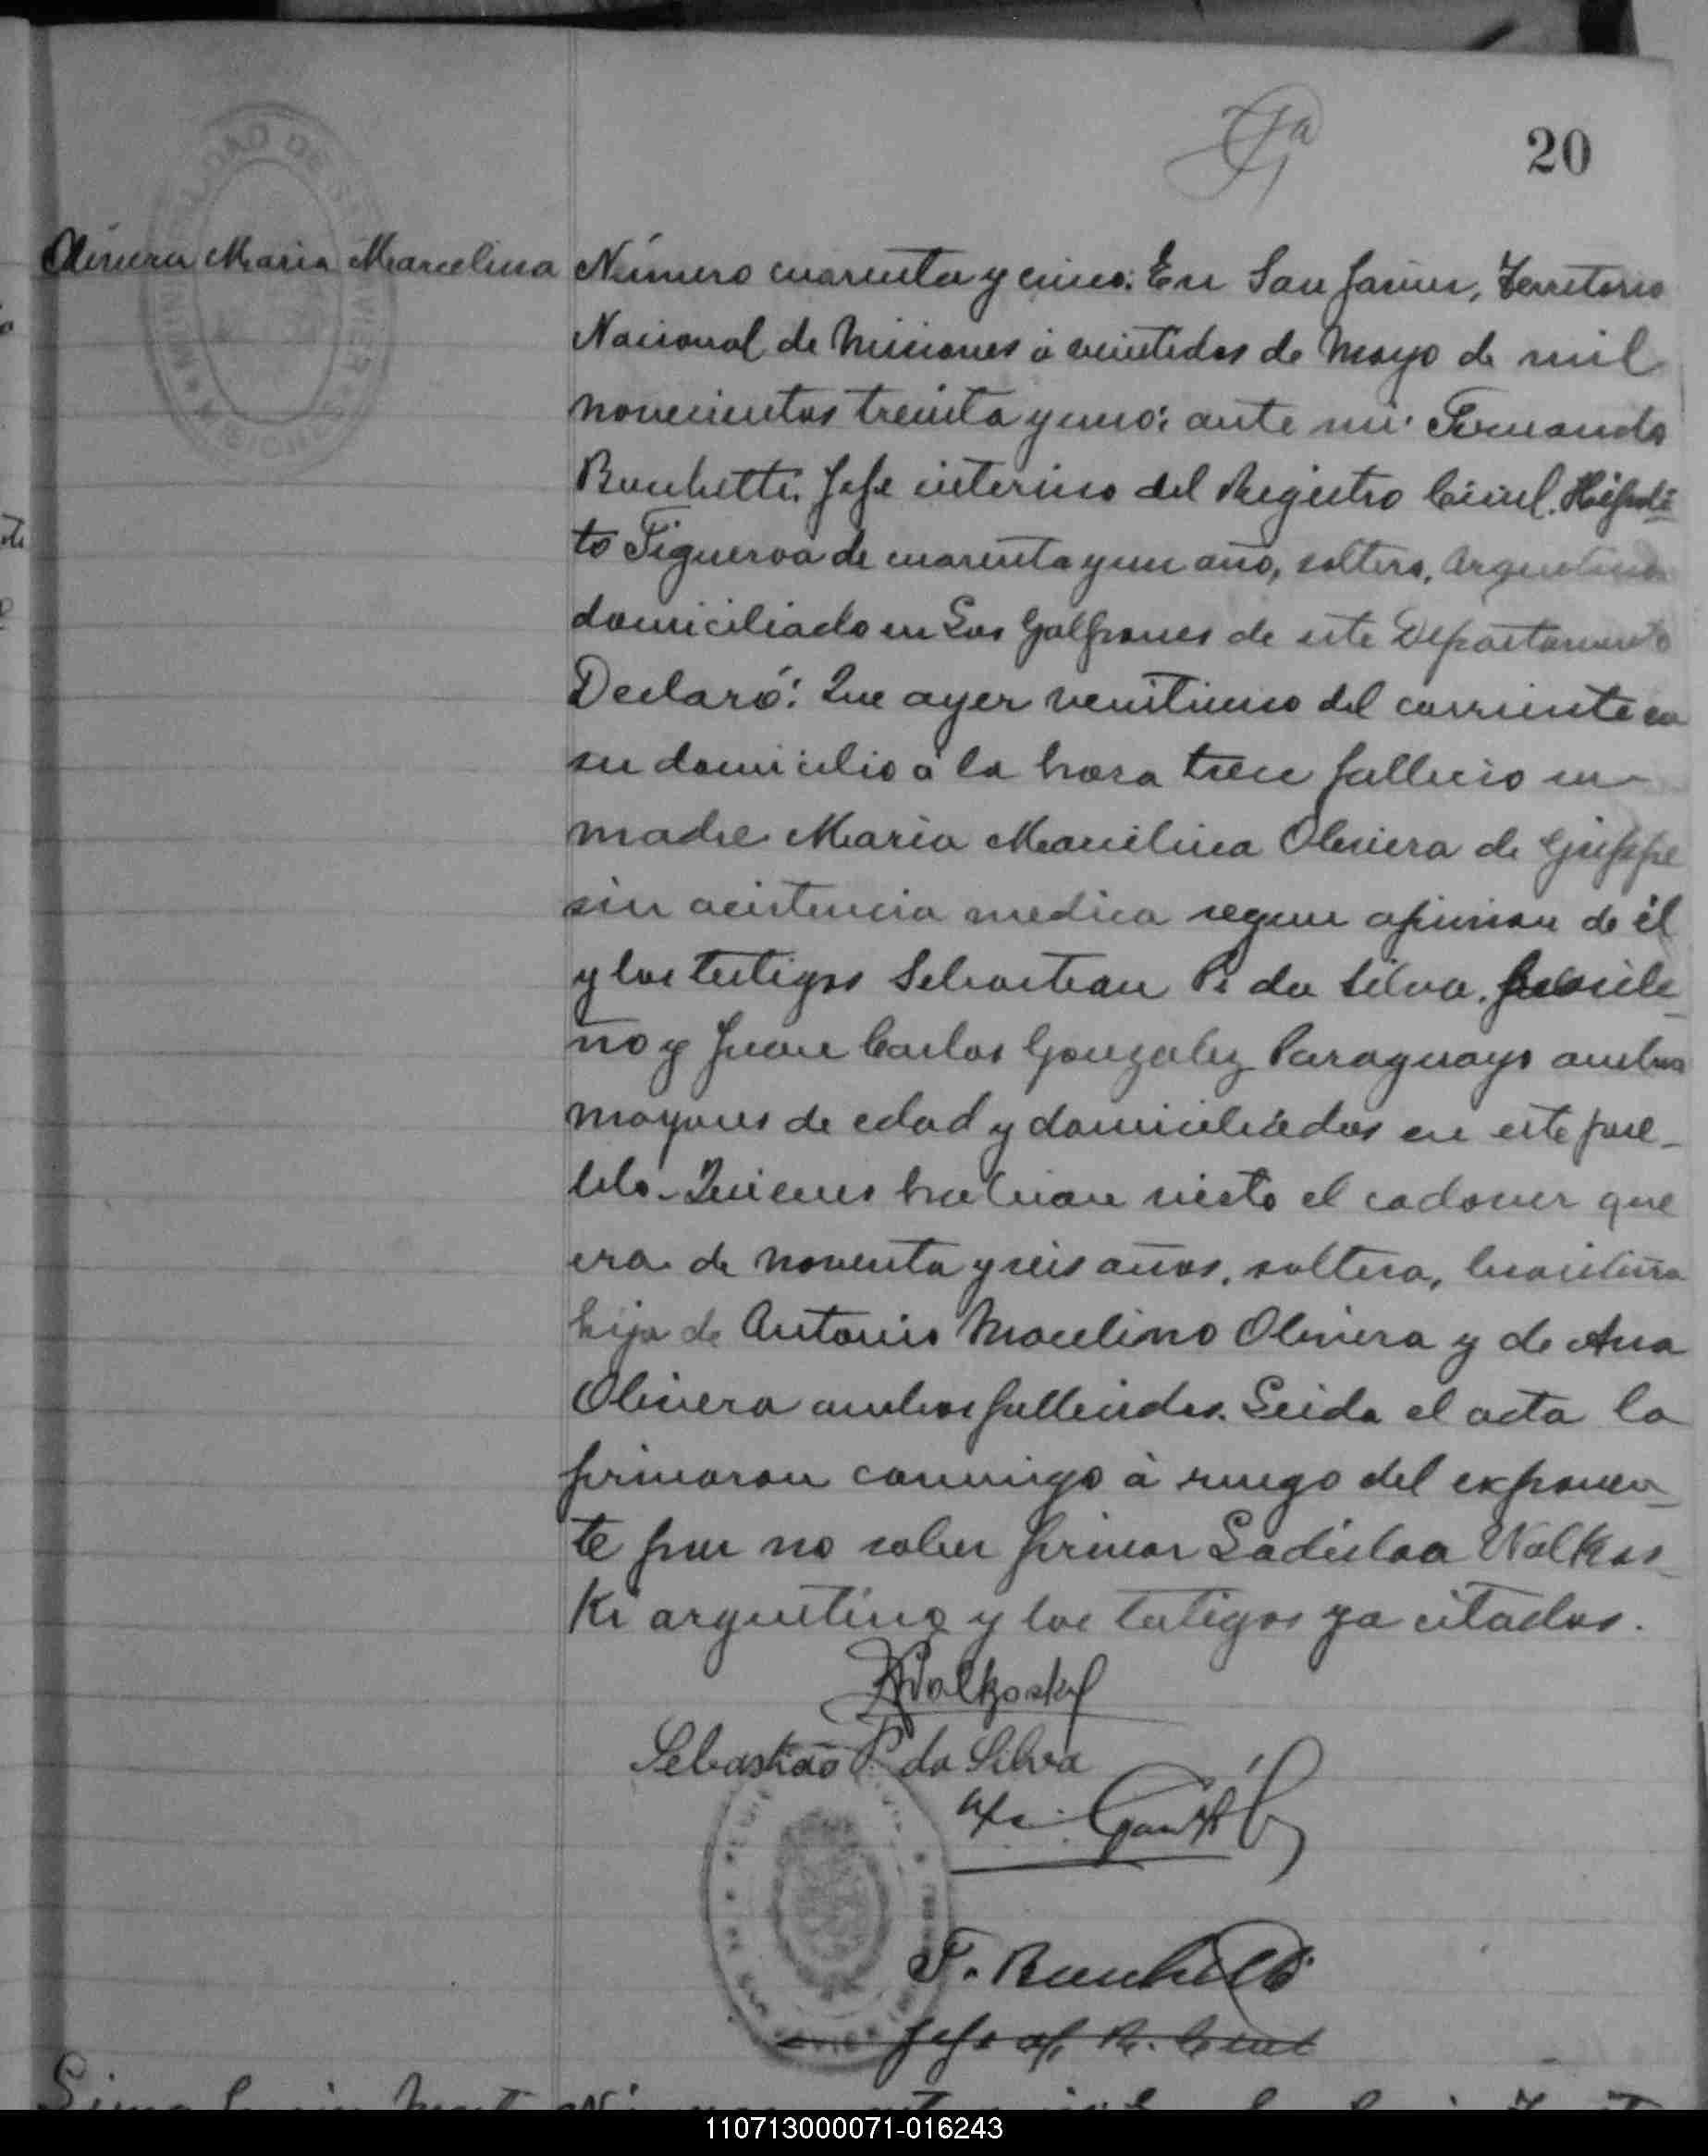 20
Olivera Maria Marcelina
Número cuarenta y cinco: En San Javier, Territorio
Nacional de Misiones á veintidos de Mayo de mil
novecientos treinta y uno: ante mi Fernando
Jefe interino del Registro Civil. Hipoli-
to Figueroa de cuarenta y un año, soltero, Argentino
domiciliado en Los Galpones de este Departamento
Declaró: Que ayer veintiuno del corriente en
su domicilio á la hora trece fallecio su
madre Maria Marcilina Olivera de
sin acistencia medica segun opinion de él
y los testigos Sebastian P. da Silva, brasile-
ño y Juan Carlos Gonzalez Paraguayo ambos
mayores de edad y domiciliados en este pue-
blo. Quienes habian visto el cadaver que
era de noventa y seis años, soltera, brasileña
hija de Antonio Olivera y de Ana
Olivera ambos fallecidos. Leida el acta la
firmaron conmigo á ruego del exponen-
te por no saber firmar Ladislaa Wolkos-
ki argentino y los testigos ya citados.
Wolkoski
Sebastião P. da Silva
F.
Jefe R. Civil
110713000071-016243